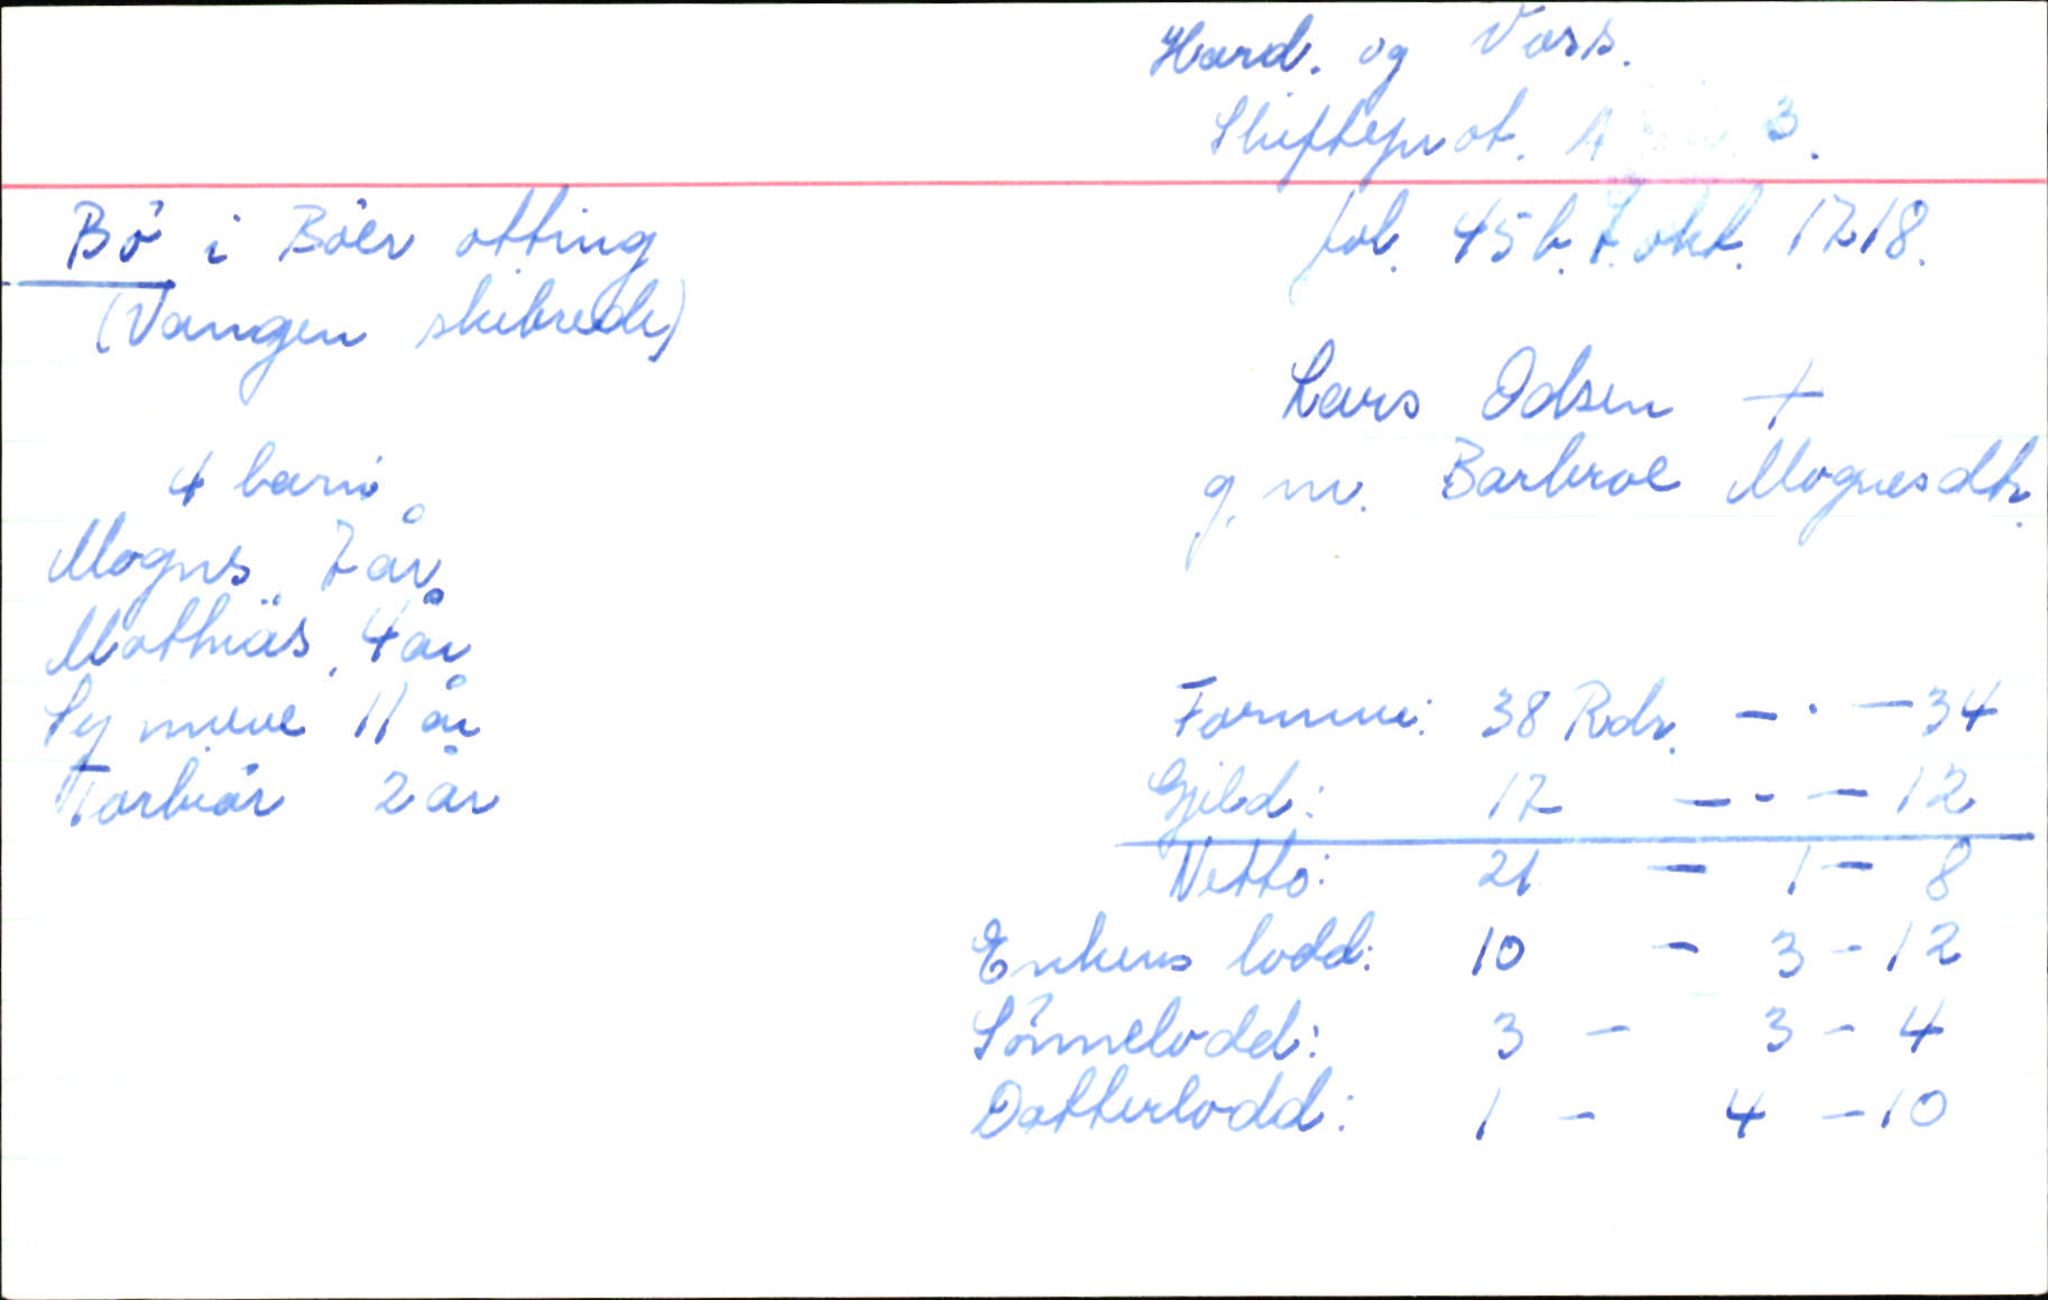 Hard. og Voss.
Skifteprot. A 3.
Bö i Böer otting
fol. 45 b. 7. okt. 1718.
(Vangen skibrede)
Lars Odsen +
g. m. Barbroe Mognesdtr.
4 barn
Mogns, 7 år
Mathias, 4 år
11 år
Torbiör 2 år
Formue: 38 Rdr. - · - 34
Gjeld: 17 - - - 12
Netto: 21 - 1 - 8
Enkens lodd: 10 - 3 - 12
Sönnelodd: 3 - 3 - 4
Datterlodd: 1 - 4 - 10